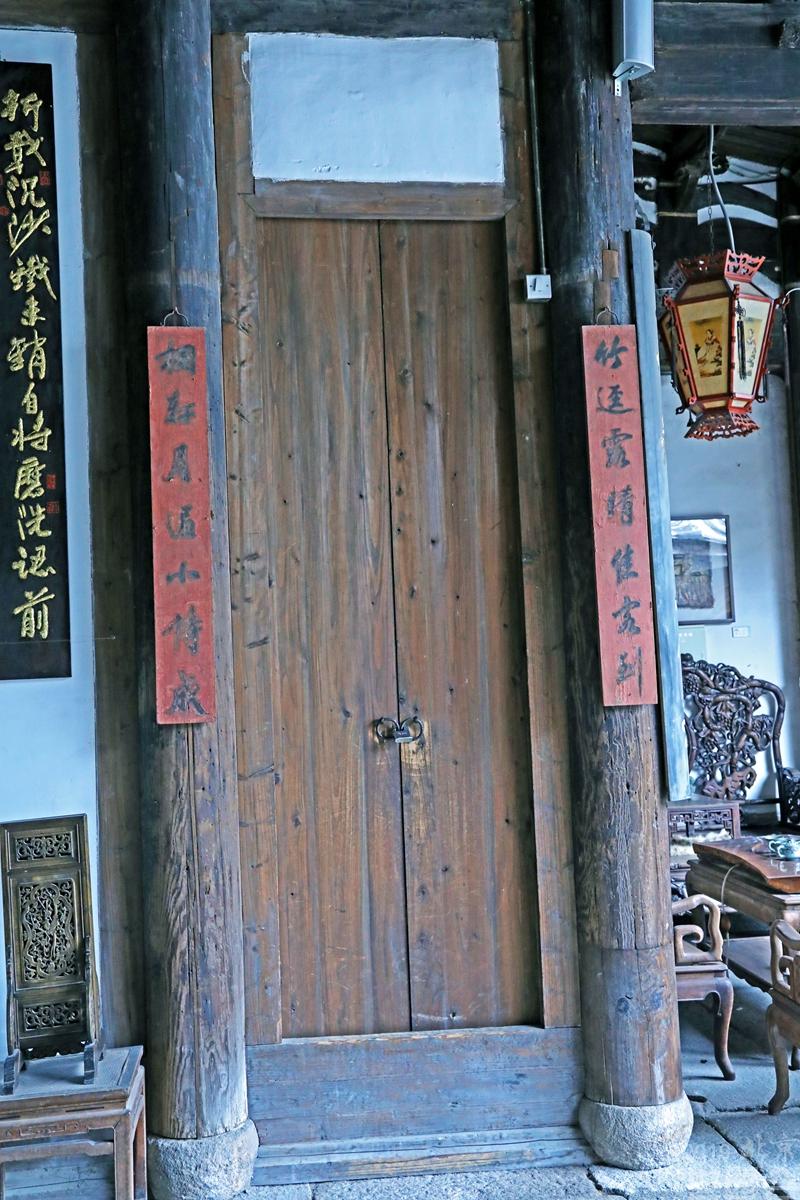 竹逕露晴佳客到
桐軒月小詩成
折戟沉沙鐵未銷自將磨洗認前